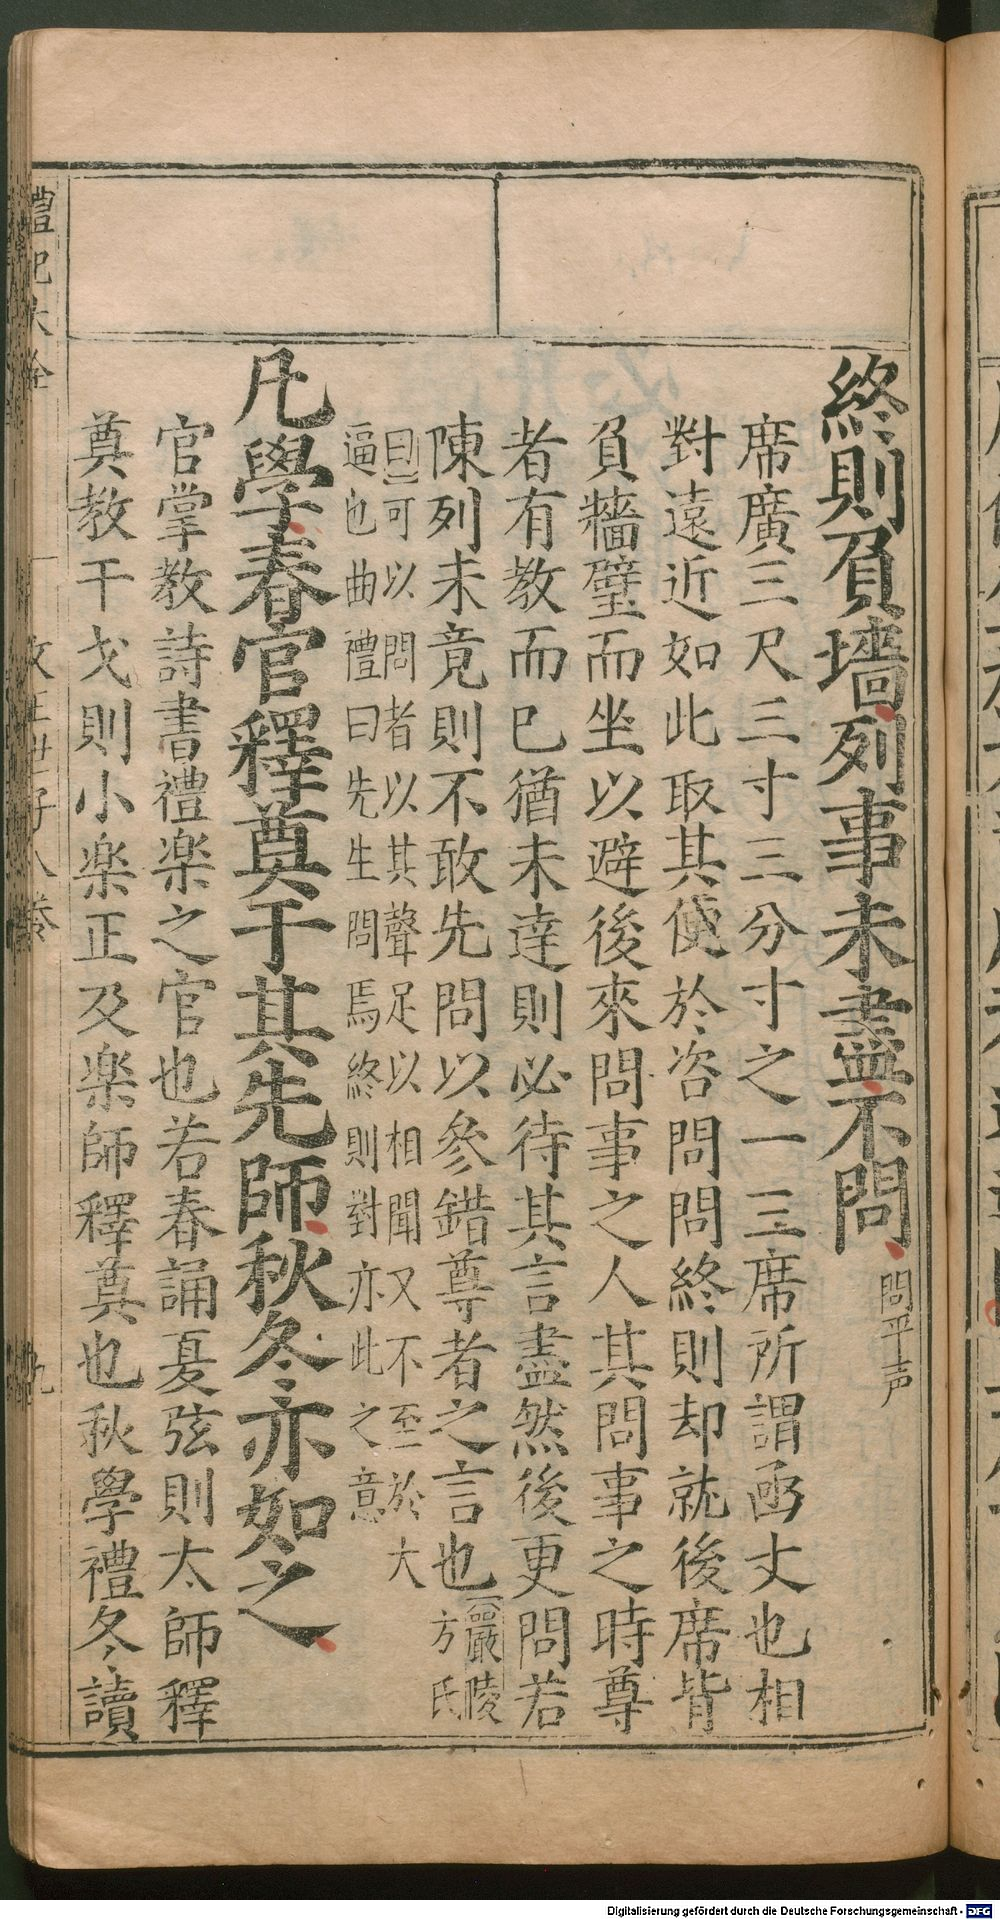 終則負墻列事未盡不問 問平声
席廣三尺三寸三分寸之一三席所謂函丈也相
對遠近如此取其便於咨問問終則却就後席背
負牆壁而坐以避後來問事之人其問事之時尊
者有教而已猶未達則必待其言盡然後更問若
陳列未竟則不敢先問以參錯尊者之言也嚴陵方氏
曰可以問者以其聲足以相聞又不至於大
逼也曲禮曰先生問焉終則對亦此之意
凡學春官釋奠于其先師秋冬亦如之
官掌教詩書禮楽之官也若春誦夏弦則太師釋
奠教干戈則小楽正及楽師釋奠也秋學禮冬讀
禮記大全 文王世子八卷 九
Digitalisierung gefördert durch die Deutsche Forschungsgemeinschaft - DFG